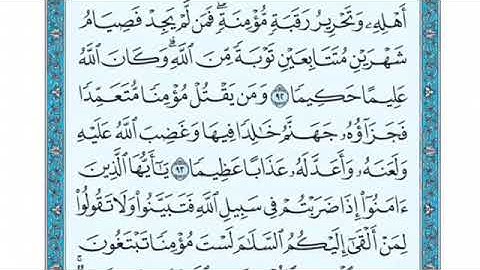 أَهۡلِهِۦ وَتَحۡرِيرُ رَقَبَةٖ مُّؤۡمِنَةٖۖ فَمَن لَّمۡ يَجِدۡ فَصِيَامُ
شَهۡرَيۡنِ مُتَتَابِعَيۡنِ تَوۡبَةٗ مِّنَ ٱللَّهِۗ وَكَانَ ٱللَّهُ
عَلِيمًا حَكِيمٗا ٩٢ وَمَن يَقۡتُلۡ مُؤۡمِنٗا مُّتَعَمِّدٗا
فَجَزَآؤُهُۥ جَهَنَّمُ خَٰلِدٗا فِيهَا وَغَضِبَ ٱللَّهُ عَلَيۡهِ
وَلَعَنَهُۥ وَأَعَدَّ لَهُۥ عَذَابًا عَظِيمٗا ٩٣ يَٰٓأَيُّهَا ٱلَّذِينَ
ءَامَنُوٓاْ إِذَا ضَرَبۡتُمۡ فِي سَبِيلِ ٱللَّهِ فَتَبَيَّنُواْ وَلَا تَقُولُواْ
لِمَنۡ أَلۡقَىٰٓ إِلَيۡكُمُ ٱلسَّلَٰمَ لَسۡتَ مُؤۡمِنٗا تَبۡتَغُونَ